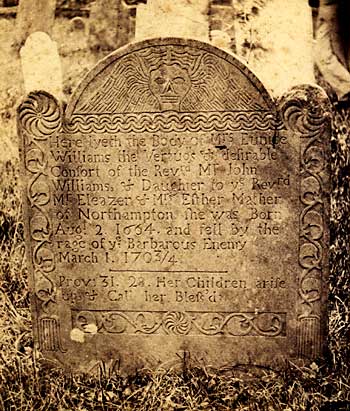 Here lyeth the Body of Mrs Eunice
Williams the Vertuos & desirable
Consort of the Revrd Mr John
Williams, & Daughter to ye Revrd
Mr Eleazer & Mrs Esther Mather
of Northampton she was Born
Augt 2, 1664, and fell by the
rage of ye Barbarous Enemy
March 1, 1703/4
Prov: 31. 28. Her Children arise
up & Call her Bless'd